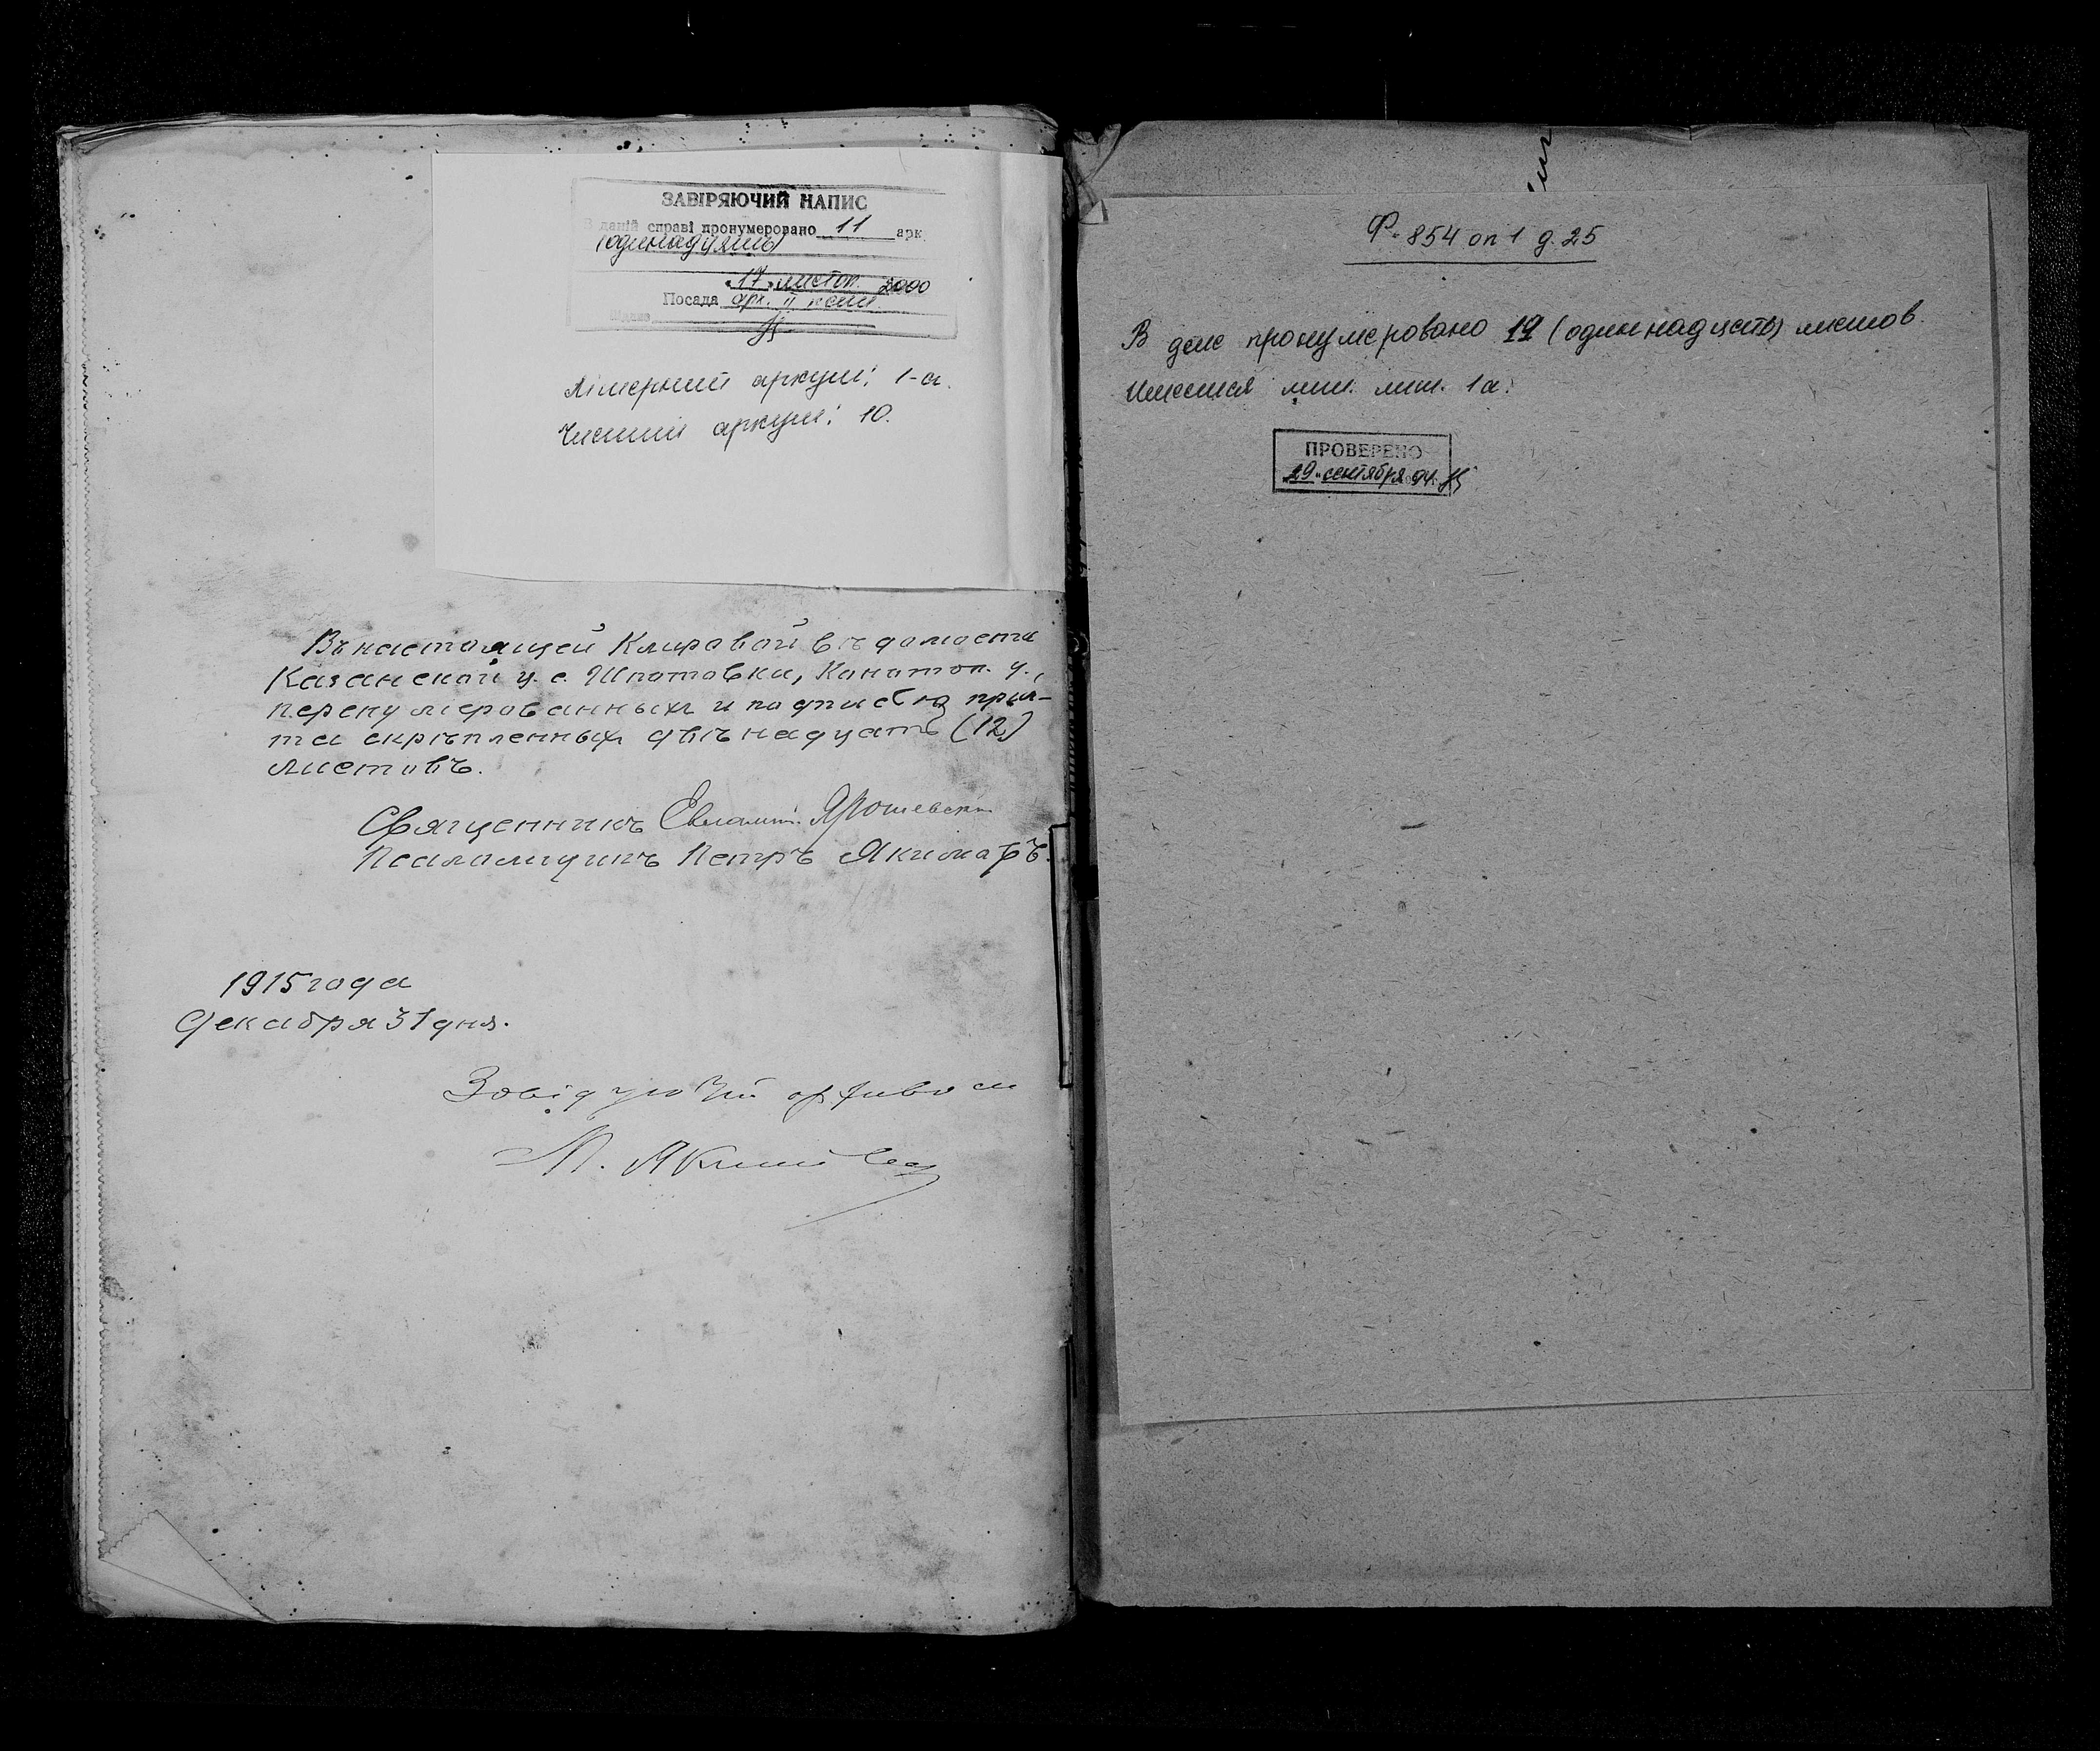 ЗАВІРЯЮЧИЙ НАПИС
В даній справі пронумеровано 11 арк.
(одинадцять)
"17" листоп. 2000
Посада арх. II кат.
Підпис
Літерний аркуш: 1-а.
Чистий аркуш: 10.
Въ настоящей Клировой вѣдомости
Казанской ц. с. Шпотовки, Конотоп. у.,
перенумерованныхъ и подписью прич-
та скрѣпленныхъ двѣнадцать (12)
листовъ.
Священникъ Евлампій Ярошевскій
Псаломщикъ Петръ Якимовъ.
1915 года
Декабря 31 дня.
Завідуючий архивом
М. Якими
Ф. 854 оп 1 д. 25
В деле пронумеровано 11 (одиннадцать) листов.
Имеется лит. лист. 1а.
ПРОВЕРЕНО
"29" сентября 94